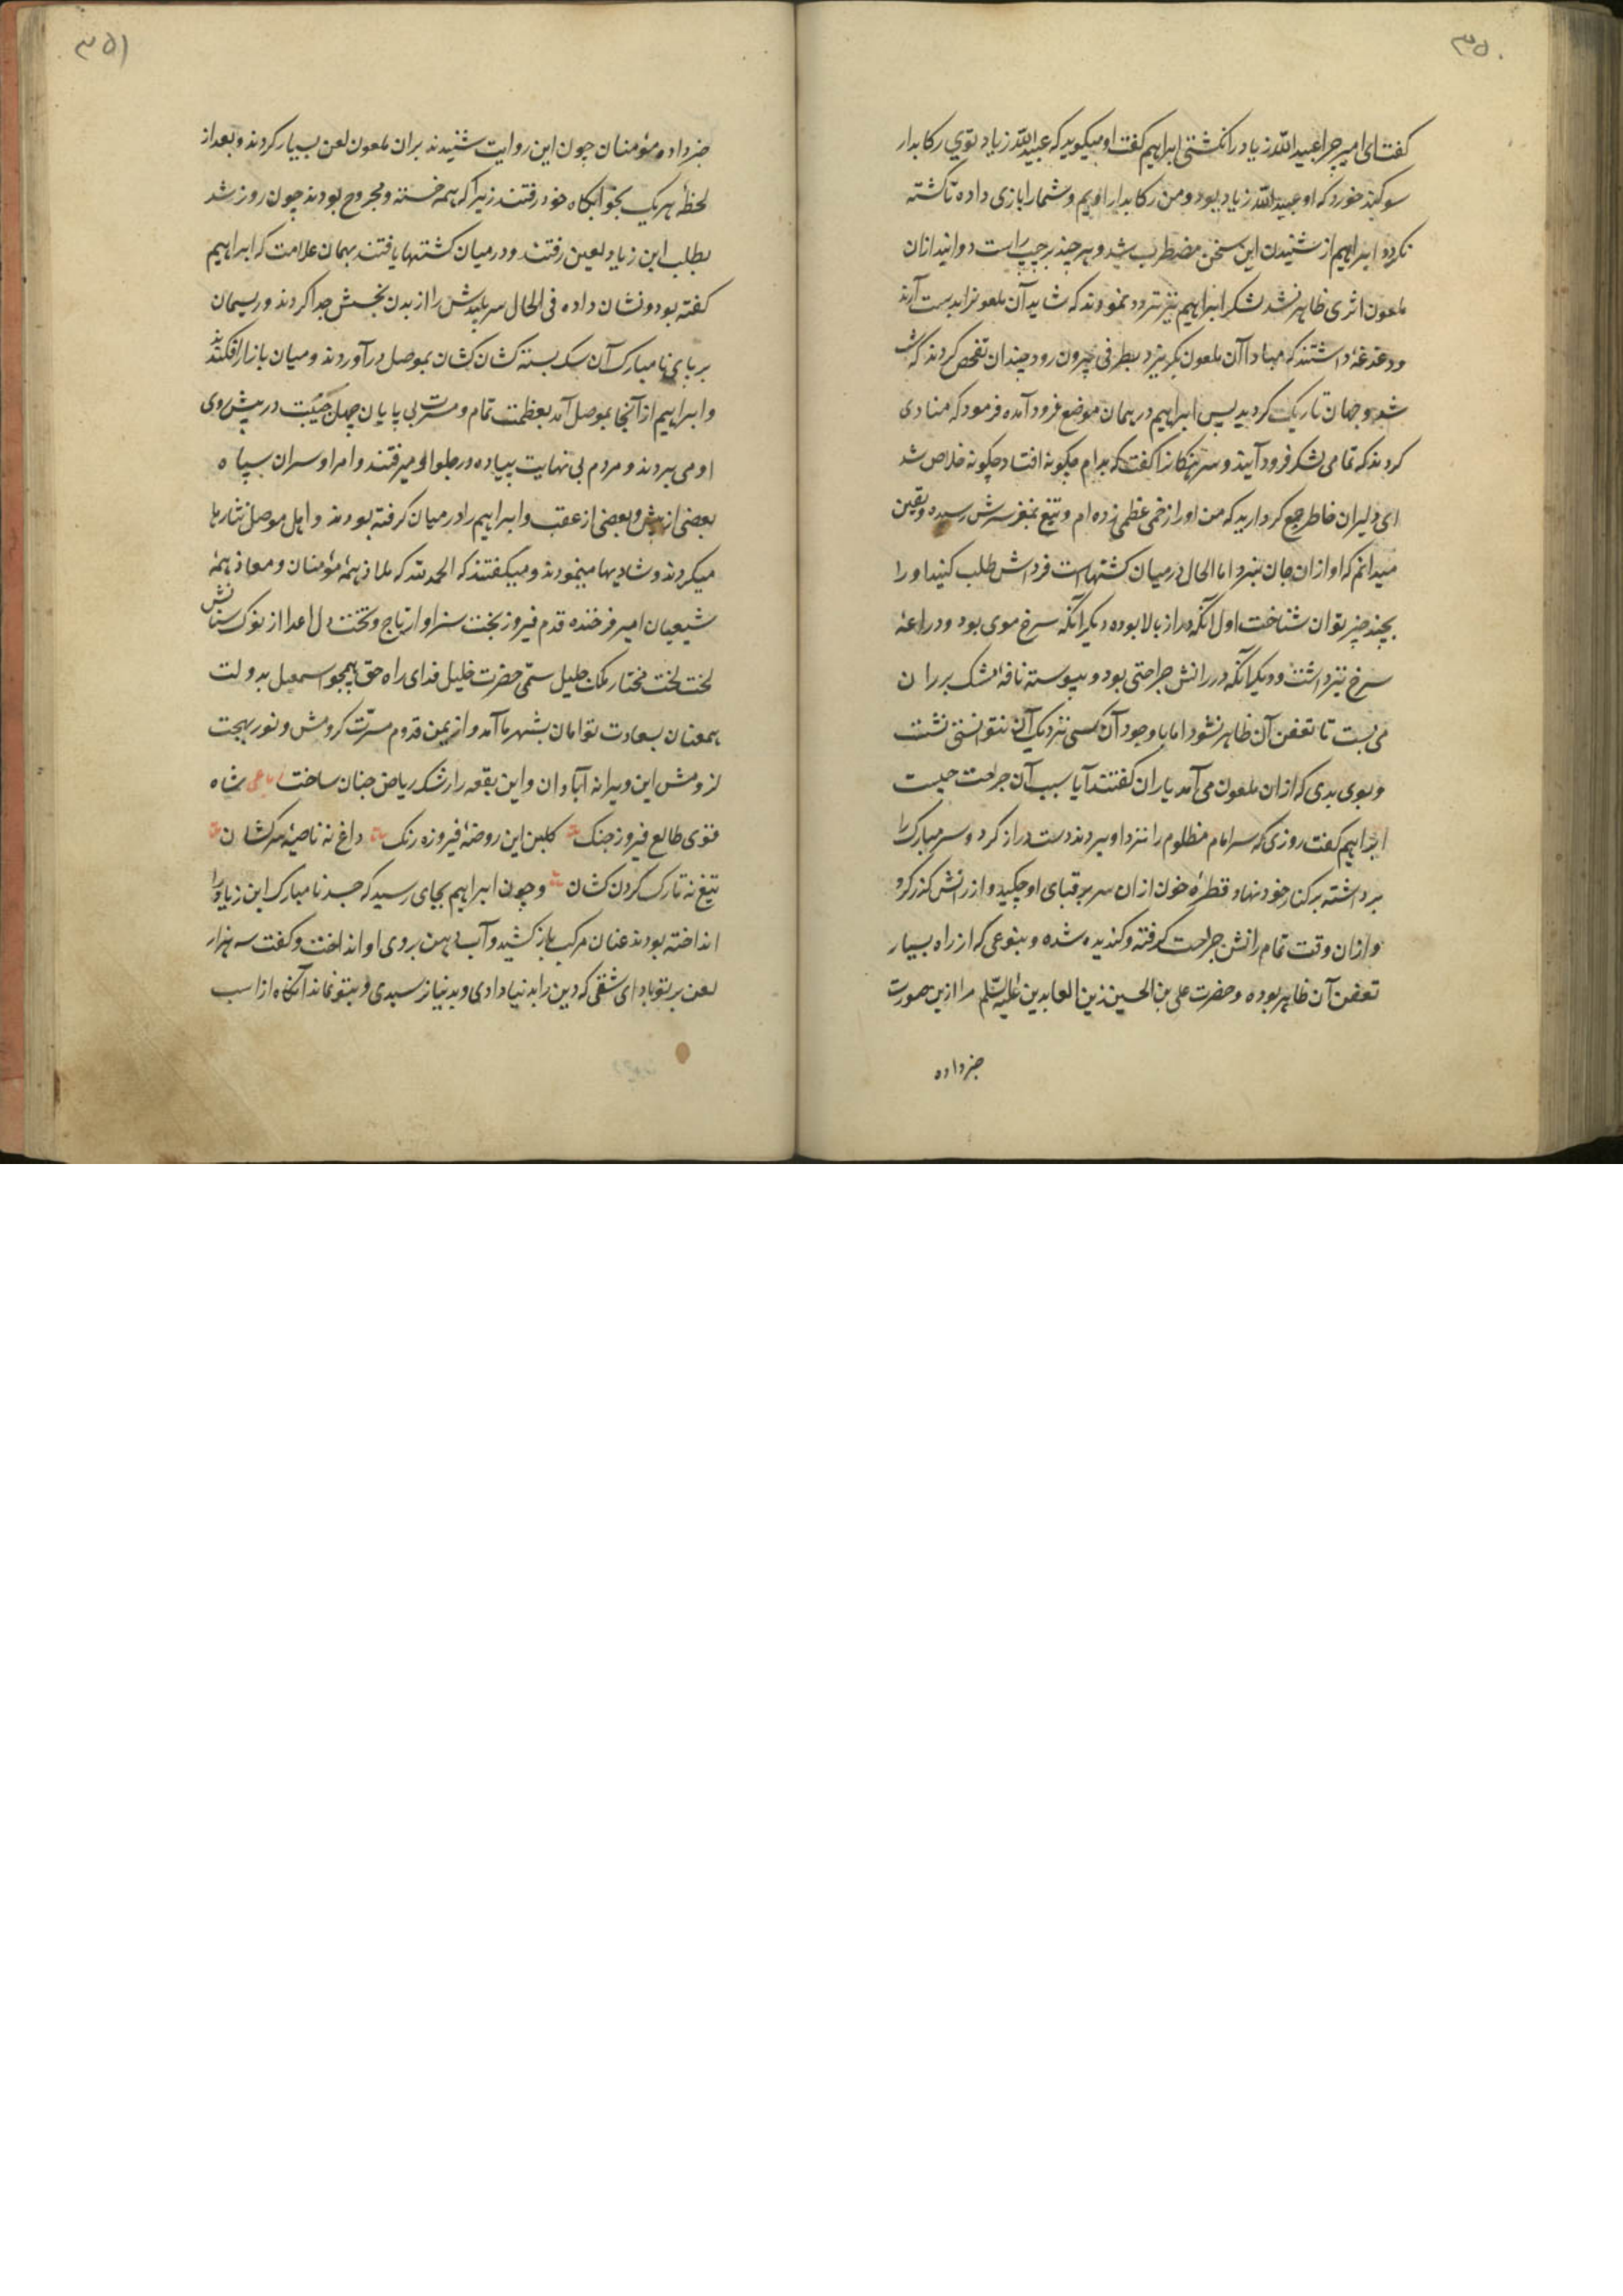 ۳۵۰
گفت ای امیر چرا عبید الله زیاد را نکشتی ابراهیم گفت او میگوید که عبید الله زیاد توی رکابدار
سوکند خورد که او عبید الله زیاد بود و من رکابدار اویم و شما را بازی داده تا کشته
نکردد ابراهیم از شنیدن این سخن مضطرب شد و هر چند بر چپ و راست دوانید ازان
ملعون اثری ظاهر نشد لشکر ابراهیم نیز تردد نمودند که شاید آن ملعونرا بدست آرند
و دغدغهٔ داشتند که مبادا آن ملعون بگریزد بطرفی بیرون رود چندان تفحص کردند که شب
شد و جهان تاریک کردید پس ابراهیم در همان موضع فرود آمده فرمود که منادی
کردند که تمامی لشکر فرود آیند و سرهنکانرا گفت که بهرام چکونه افتاد چکونه خلاص شد
ای دلیران خاطر جمع کردارید که من او را زخمی عظمی زده ام و تیغ بمغز سرش رسیده و یقین
میدانم که او ازان جان نبرد اما الحال در میان کشتهاست فرداش طلب کنید او را
بچند چیز توان شناخت اول آنکه دراز بالا بوده دیکر آنکه سرخ موی بود و دراعهٔ
سرخ نیز داشت و دیکر آنکه در رانش جراحتی بود و پیوسته نافهٔ مشک بر ران
می بست تا تعفن آن ظاهر نشود اما با وجود آن کسی نزدیک آن نتوانستی نشست
و بوی بدی که ازان ملعون می آمد یاران گفتند آیا سبب آن جراحت چیست
ابراهیم گفت روزی که سر امام مظلوم را نزد او بردند دست دراز کرد و سر مبارک را
برداشته بر کنار خود نهاد قطرهٔ خون ازان سر بر قبای او چکید و از رانش کذر کرد
و ازان وقت تمام رانش جراحت گرفته و کندیده شده و بنوعی که از راه بسیار
تعفن آن ظاهر بوده و حضرت علی بن الحسین زین العابدین علیه السلم مرا ازین صورت
خبر داده
۳۵۱
خبر داد و مؤمنان چون این روایت شنیدند بران ملعون لعن بسیار کردند و بعد از
لحظهٔ هریک بخوابکاه خود رفتند زیرا که همه خسته و مجروح بودند چون روز شد
بطلب ابن زیاد لعین رفتند و در میان کشتها یافتند بهمان علامت که ابراهیم
کفته بود و نشان داده فی الحال سر پلیدش را از بدن نجسش جدا کردند و ریسمان
بر پای نا مبارک آن سک بسته کشان کشان بموصل در آوردند و میان بازار افکندند
و ابراهیم از آنجا بموصل آمد بعظمت تمام و مسرت بی پایان چهل جنیبت در پیش روی
او می بردند و مردم بی نهایت پیاده در جلو او میرفتند و امرا و سران سپاه
بعضی از پیش و بعضی از عقب و ابراهیم را در میان کرفته بودند و اهل موصل نثارها
میکردند و شادیها مینمودند و میکفتند که الحمد لله که ملاذ همهٔ مؤمنان و معاذ همهٔ
شیعیان امیر فرخنده قدم فیروز بخت سزاوار تاج و تخت دل اعدا از نوک سنانش
لخت لخت مختار ملک جلیل سمّی حضرت خلیل فدای راه حق همچو اسمعیل بدولت
همعنان بسعادت توامان بشهر ما آمد و از یمن قدوم مسرّت کردمش و نور بهجت
لزومش این ویرانه آبادان و این بقعه را رشک ریاض جنان ساخت رباعی شاه
قوی طالع فیروز جنک کلبن این روضهٔ فیروزه رنک داغ نه ناصیهٔ سرکشان
تیغ نه تارک گردن کشان و چون ابراهیم بجای رسید که جسد نا مبارک ابن زیاد را
انداخته بودند عنان مرکب باز کشید و آب دهن بروی او انداخت و کفت سه هزار
لعن بر تو باد ای شقی که دین را بدنیا دادی و بدنیا نرسیدی و بتو نماند آنکاه از اسب